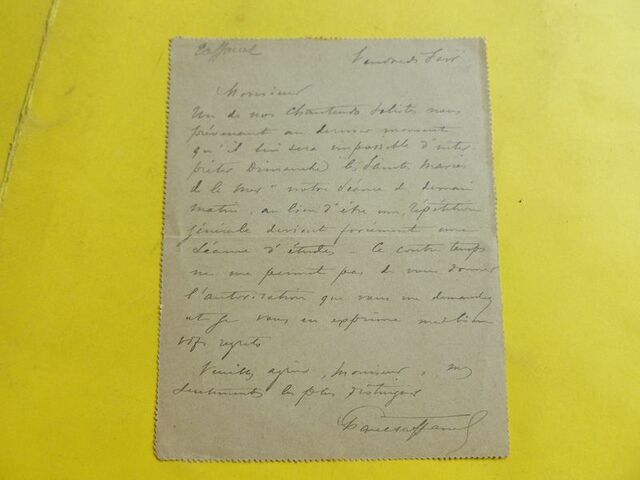 Taffanel
Vendredi soir
Monsieur
Un de nos chanteurs solistes nous
prévenant au dernier moment
qu'il lui sera impossible d'inter
préter Dimanche "les Saintes Maries
de la Mer" notre séance de demain
matin, au lieu d'être une répétition
générale devient forcément une
séance d'études - Ce contre temps
ne me permet pas de vous donner
l'autorisation que vous me demandez
et je vous en exprime
vifs regrets
Veuillez agréer, Monsieur, mes
sentiments les plus distingués
Taffanel